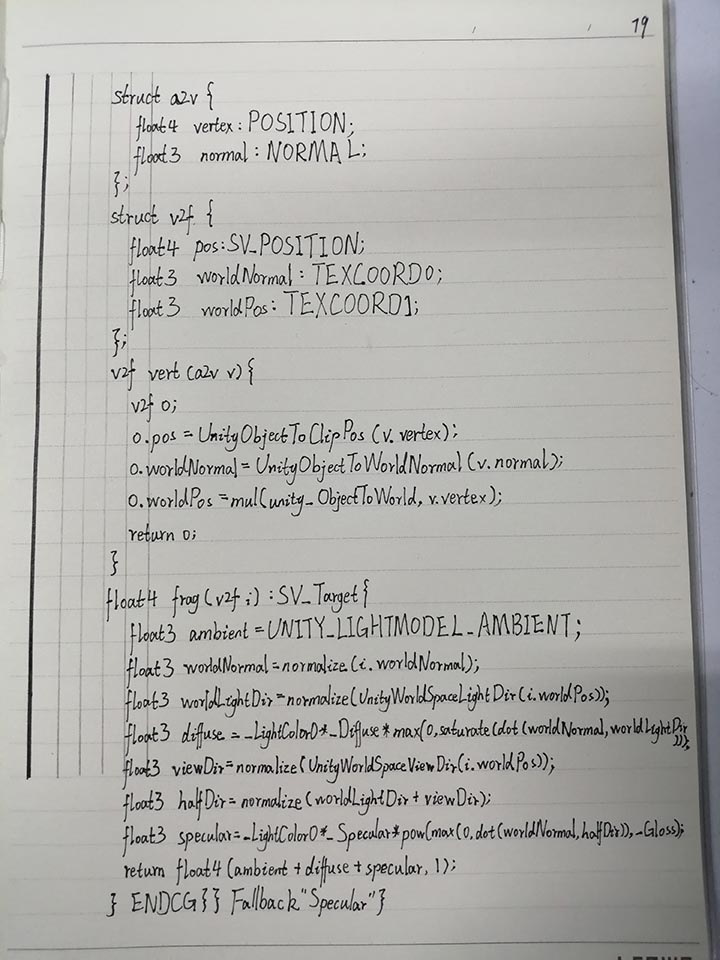 19
struct a2v {
float4 vertex : POSITION;
float3 normal : NORMAL;
};
struct v2f {
float4 pos : SV_POSITION;
float3 worldNormal : TEXCOORD0;
float3 worldPos : TEXCOORD1;
};
v2f vert (a2v v) {
v2f o;
o.pos = UnityObjectToClipPos (v.vertex);
o.worldNormal = UnityObjectToWorldNormal (v.normal);
o.worldPos = mul(unity_ObjectToWorld, v.vertex);
return o;
}
float4 frag (v2f i) : SV_Target{
float3 ambient = UNITY_LIGHTMODEL_AMBIENT;
float3 worldNormal = normalize (i.worldNormal);
float3 worldLightDir = normalize (UnityWorldSpaceLightDir (i.worldPos));
float3 diffuse = _LightColor0 * _Diffuse * max(0, saturate (dot (worldNormal, worldLightDir
)));
float3 viewDir = normalize (UnityWorldSpaceViewDir (i.worldPos));
float3 halfDir = normalize (worldLightDir + viewDir);
float3 specular = _LightColor0 * _Specular * pow(max(0, dot (worldNormal, halfDir)), _Gloss);
return float4 (ambient + diffuse + specular, 1);
} ENDCG } } Fallback "Specular" }